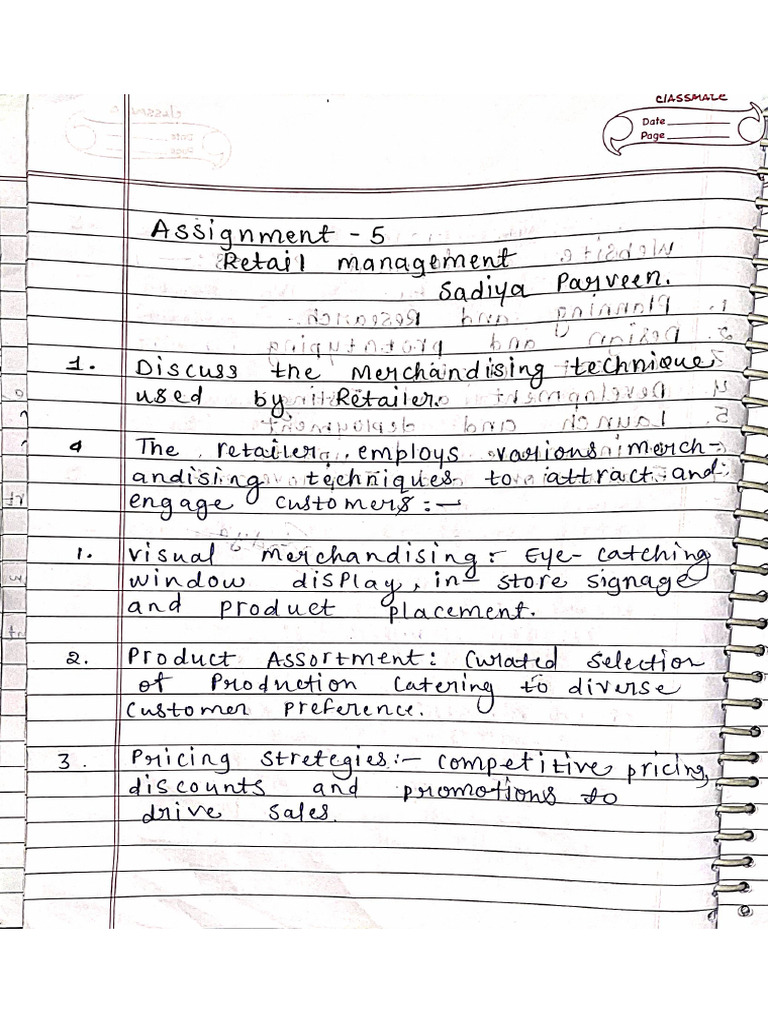 CLASSMATE
Date
Page
Assignment - 5
Retail management
Sadiya Parveen.
1. Discuss the Merchandising technique
used by Retailer.
The retailer employs various merch-
andising techniques to attract and
engage customers:-
1. Visual merchandising:- Eye-catching
window display, in- store signage
and product placement.
2. Product Assortment: Curated selection
of Production catering to diverse
customer preference.
3. Pricing Stretegies:- competitive pricing,
discounts and promotions to
drive sales.